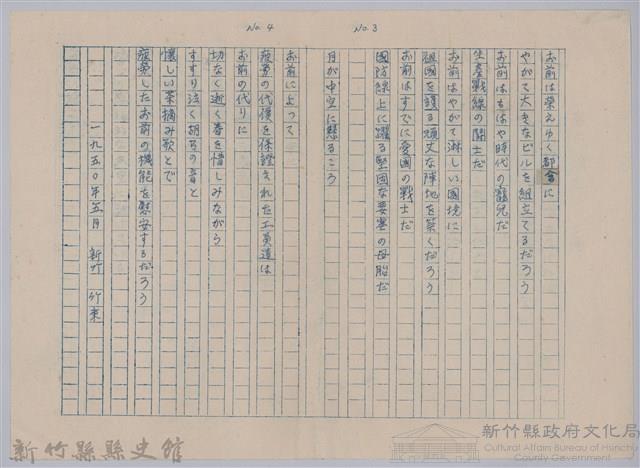 No. 3
お前は栄えゆく都會に
やがて大きなビルを組立てるだろう
お前はもはや時代の寵児だ
生産戦線の闘士だ
お前はやがて淋しい國境に
祖國を護る頑丈な陣地を築くだろう
お前はすでに愛國の戦士だ
國防線上に躍る堅固な要塞の母胎だ
月が中空に懸るころ
No. 4
お前によって
疲労の代償を保證された工員達は
お前の代りに
切なく逝く春を惜しみながら
すすり泣く胡弓の音と
懐しい茶摘み歌とで
疲労したお前の機能を慰安するだろう
一九五〇年五月 新竹 竹東
新竹縣縣史館
新竹縣政府文化局
Cultural Affairs Bureau of Hsinchu
County Government